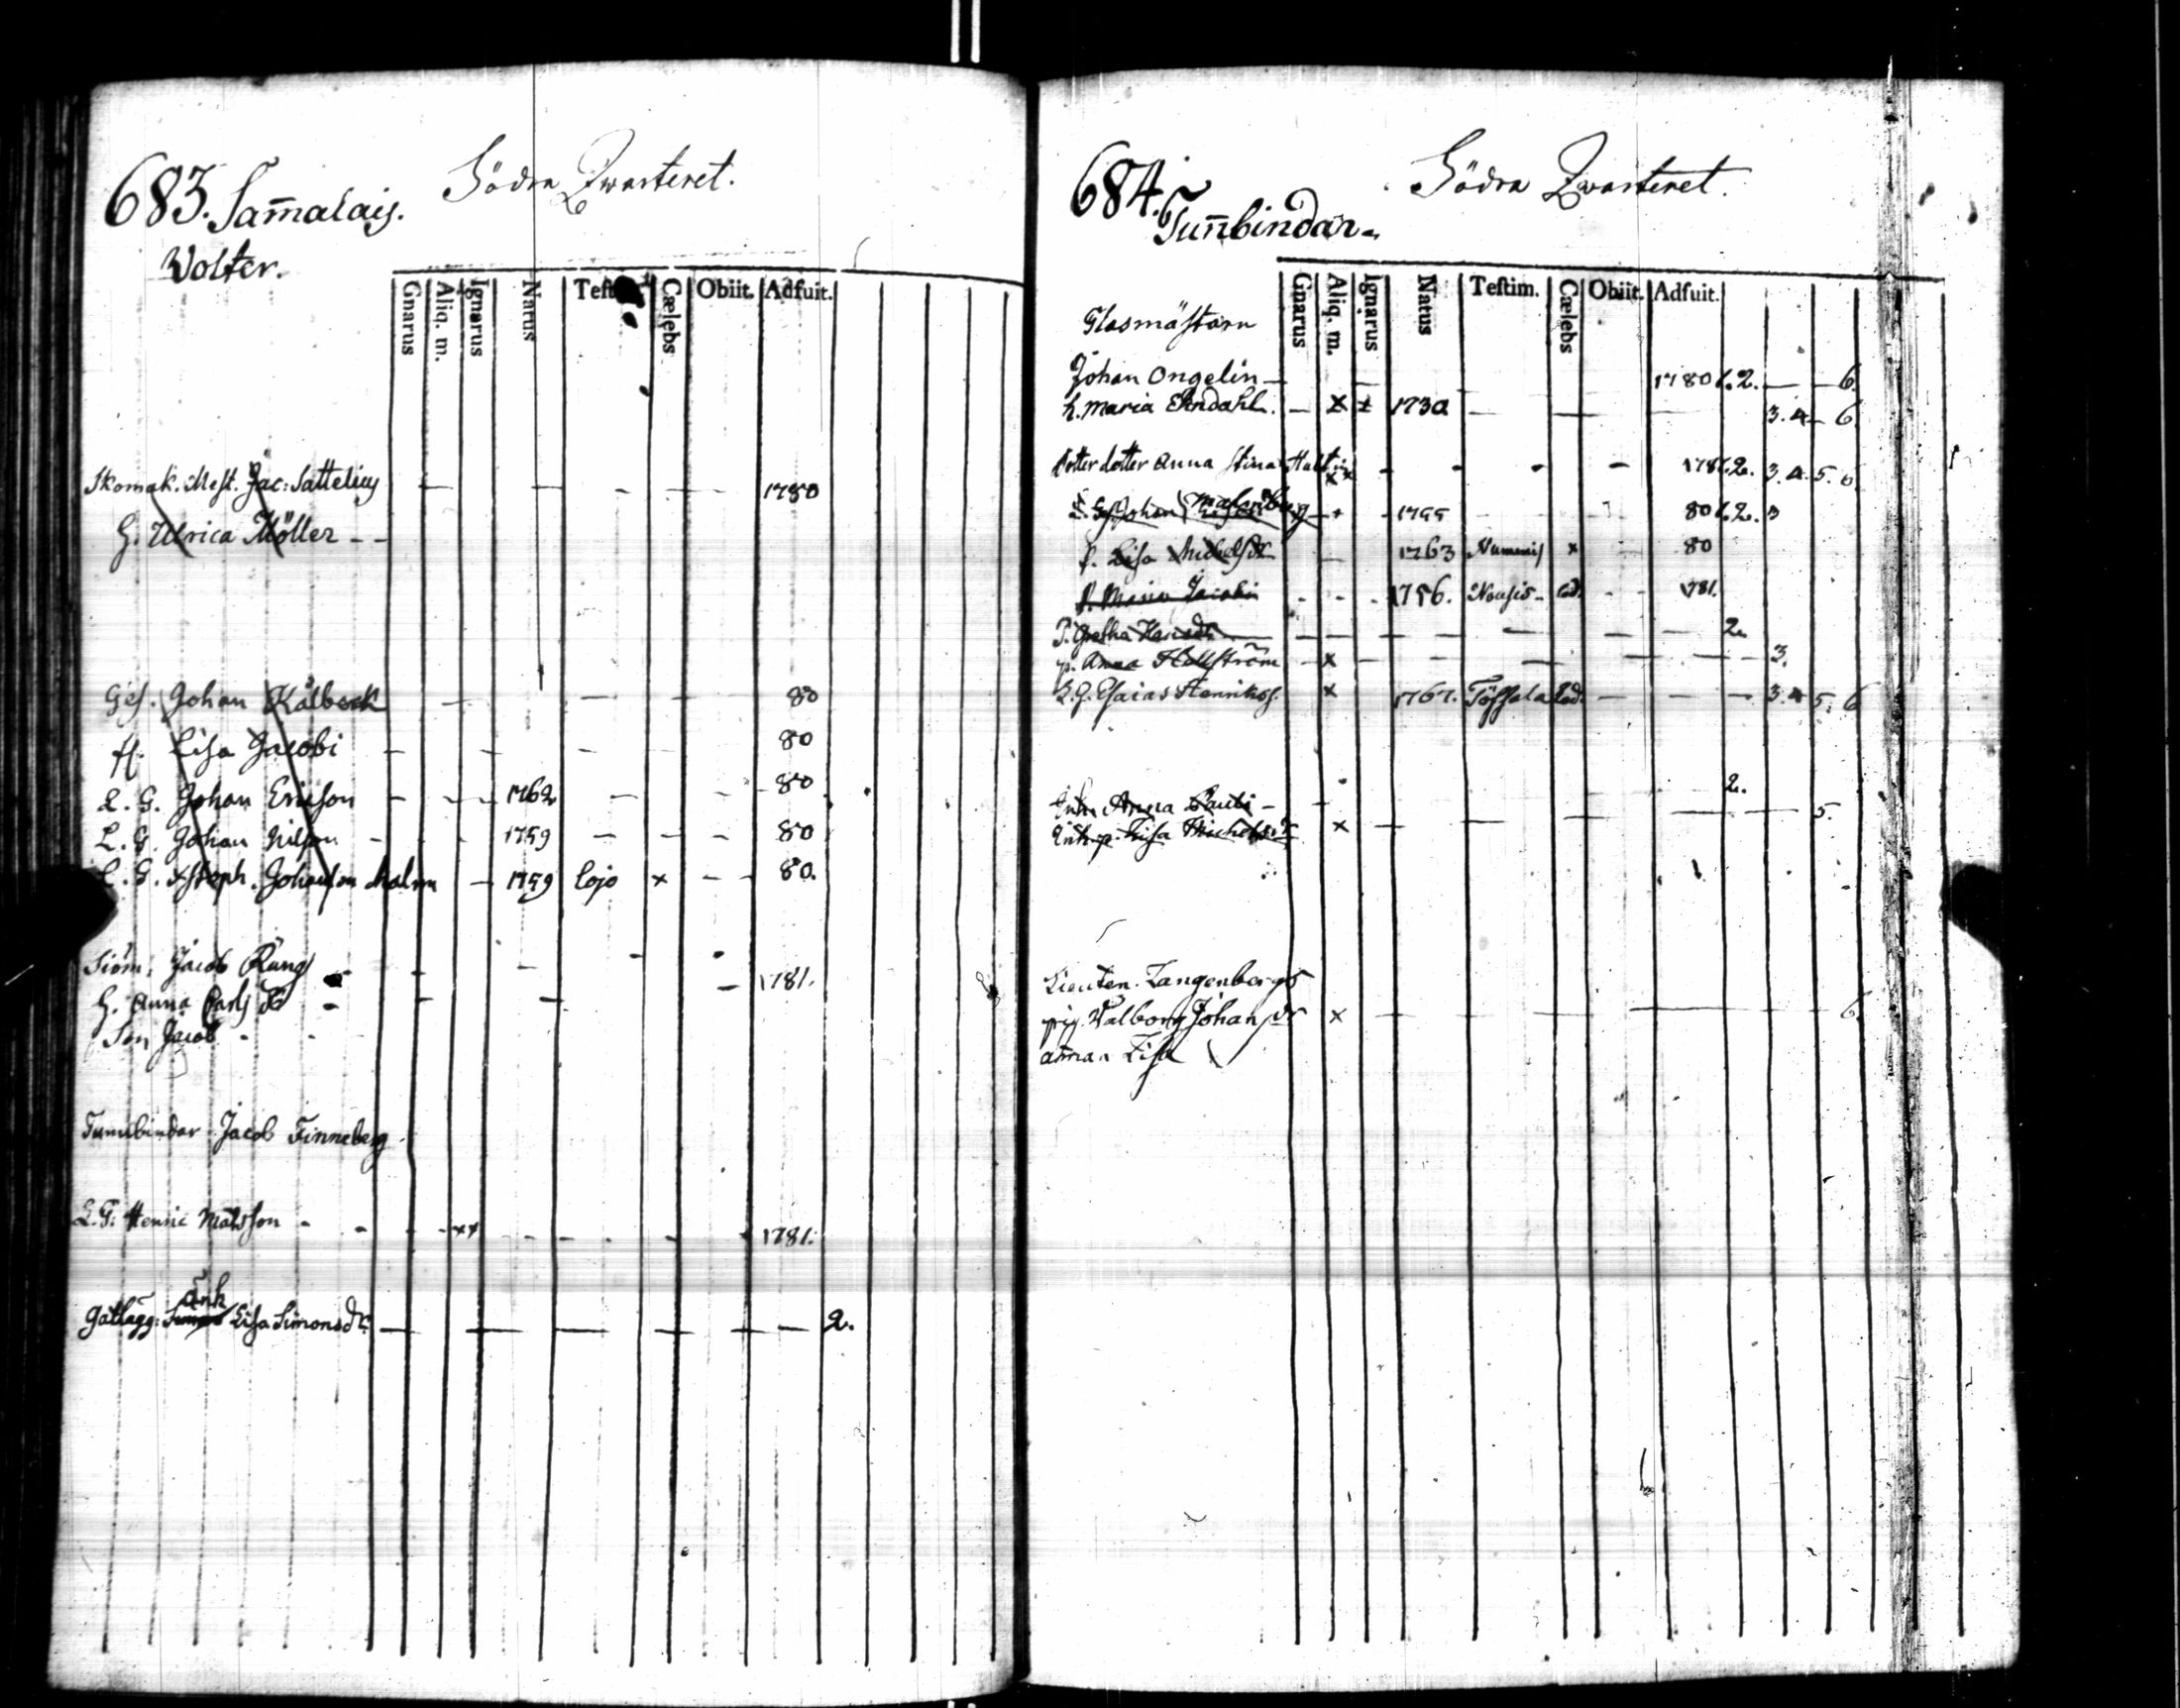 683. Sam̄alais. Södra Qwarteret.
Wolter.
Gnarus Aliq. m. Ignarus Natus Cælebs Obiit. Adfuit.
Skomak. Mest. Jac: Sattelius — — — — 1780
H. Ulrica Möller - -
Ges. Johan Kålbeck — — — 80
H. Lisa Jacobi — — — — 80
L. G. Johan Ericson — — 1762 — — 80
L. G. Johan Nilson — — 1759 — — — 80
L. G. Johanson Malm — 1759 Lojo x — — 80.
Siöm. Jacob 1781.
H. Anna Carls dr
Son Jacob
Tunnbindar Jacob Finneberg
L. G. Henric Matsson - - - xx - - - - 1781.
Enk
Gatlägg: Lisa Simonsdr — — — — — 2.
684. Södra Qwarteret.
Tun̄bindar
Gnarus Aliq. m. Ignarus Natus Testim. Cælebs Obiit. Adfuit.
Glasmästarn
Johan Ongelin — 1780 1. 2. — — 6.
h. Maria — x x 1730 — — — 3. 4 — 6
dotter Anna Stina - - - - 1781. 2. 3. 4. 5. 6.
Johan 1755 80 1. 2. 3
p. Lisa Michelsdr — 1763 Nummis x — 80
p. Maria Jacobi - - - 1756. Nousis - - - 1781.
P. Gretha — — — — — — 2.
p. Anna Hellström — x — — — — — 3.
L. G. Esaias Henriks. x 1767. — — 3. 4 5. 6
Anna — 2.
Enk. p. Lisa Michelsdr x — — — — — 5.
Lieuten. Langenbergs
pig. Walborg Johansdr x — — — — — 6.
am̄an Lisa